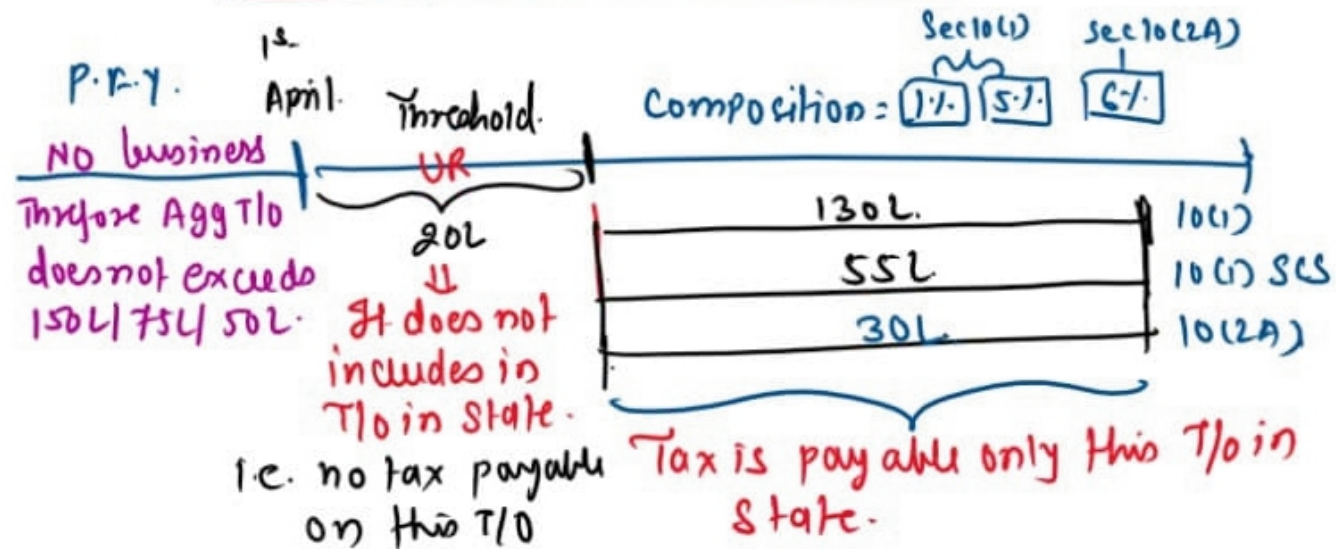 Sec10(1) Sec10(2A)
P.F.Y. 1st April. Threshold. Composition = 1% 5% 6%
No business UR
Threfore Agg T/o
does not exceeds
150L/75L/50L.
20L
⇓
It does not
includes in
T/o in State.
i.e. no tax payable
on this T/O
130L. 10(1)
55L 10(1) SCS
30L 10(2A)
Tax is payable only this T/o in
State.